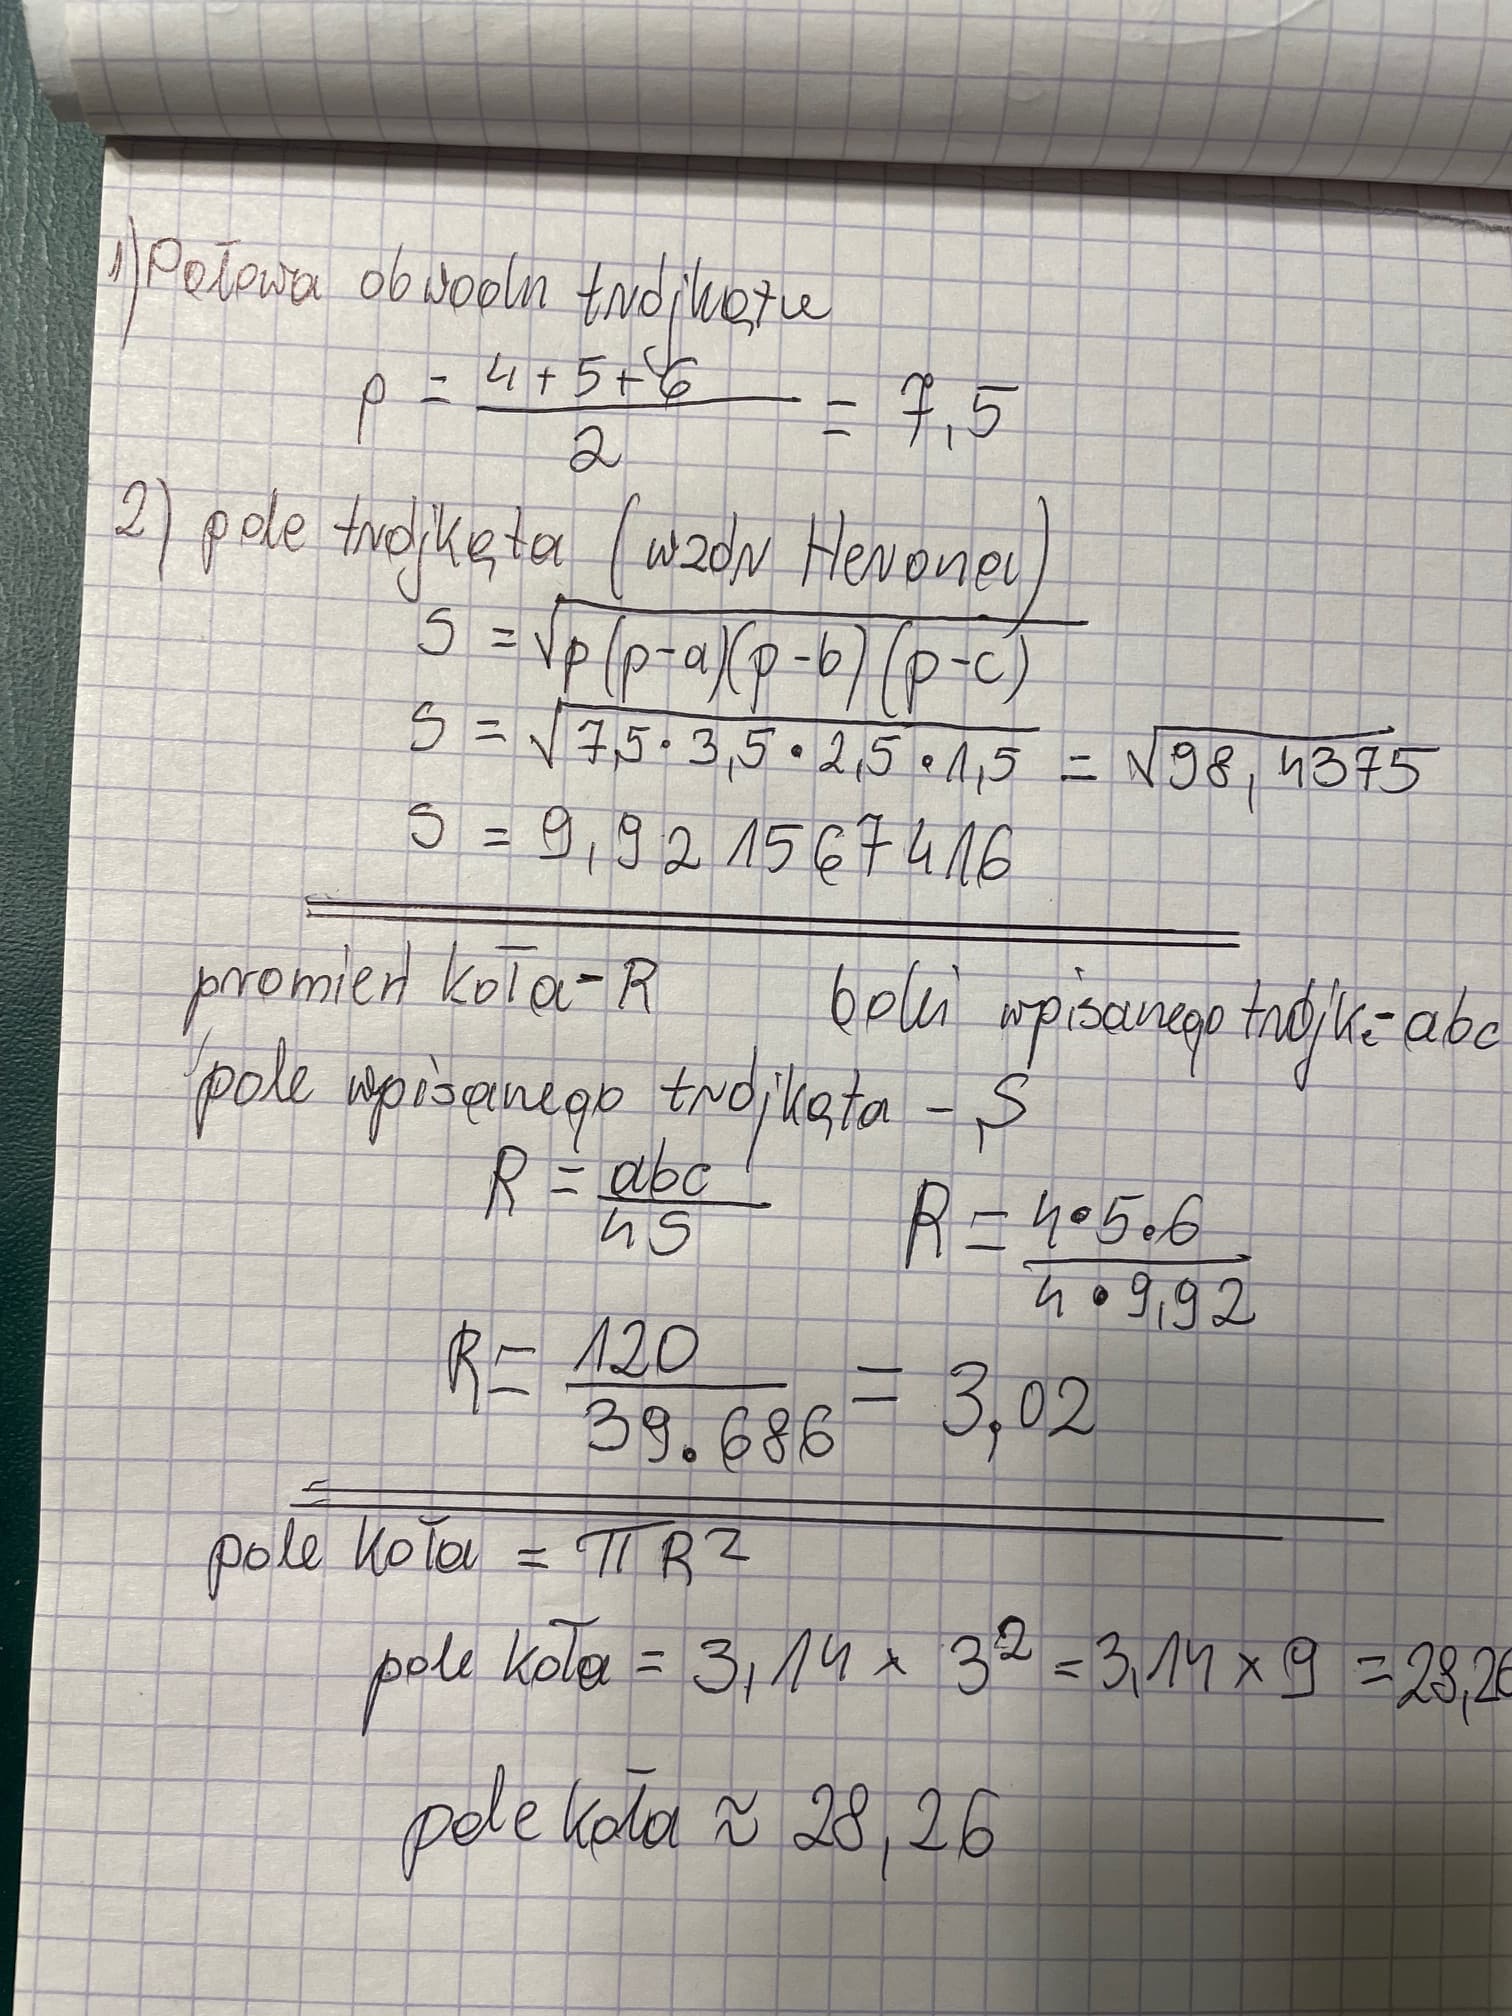 1) Połowa obwodu trójkąta
p = 4+5+6 / 2 = 7,5
2) pole trójkąta (wzór Herona)
S = √p(p-a)(p-b)(p-c)
S = √7,5·3,5·2,5·1,5 = √98,4375
S = 9,921567416
promień koła - R boki wpisanego trójk. - abc
pole wpisanego trójkąta - S
R = abc / 4S R = 4·5·6 / 4·9,92
R = 120 / 39.686 = 3,02
pole koła = πR²
pole koła = 3,14 × 3² = 3,14 × 9 = 28,26
pole koła ≈ 28,26